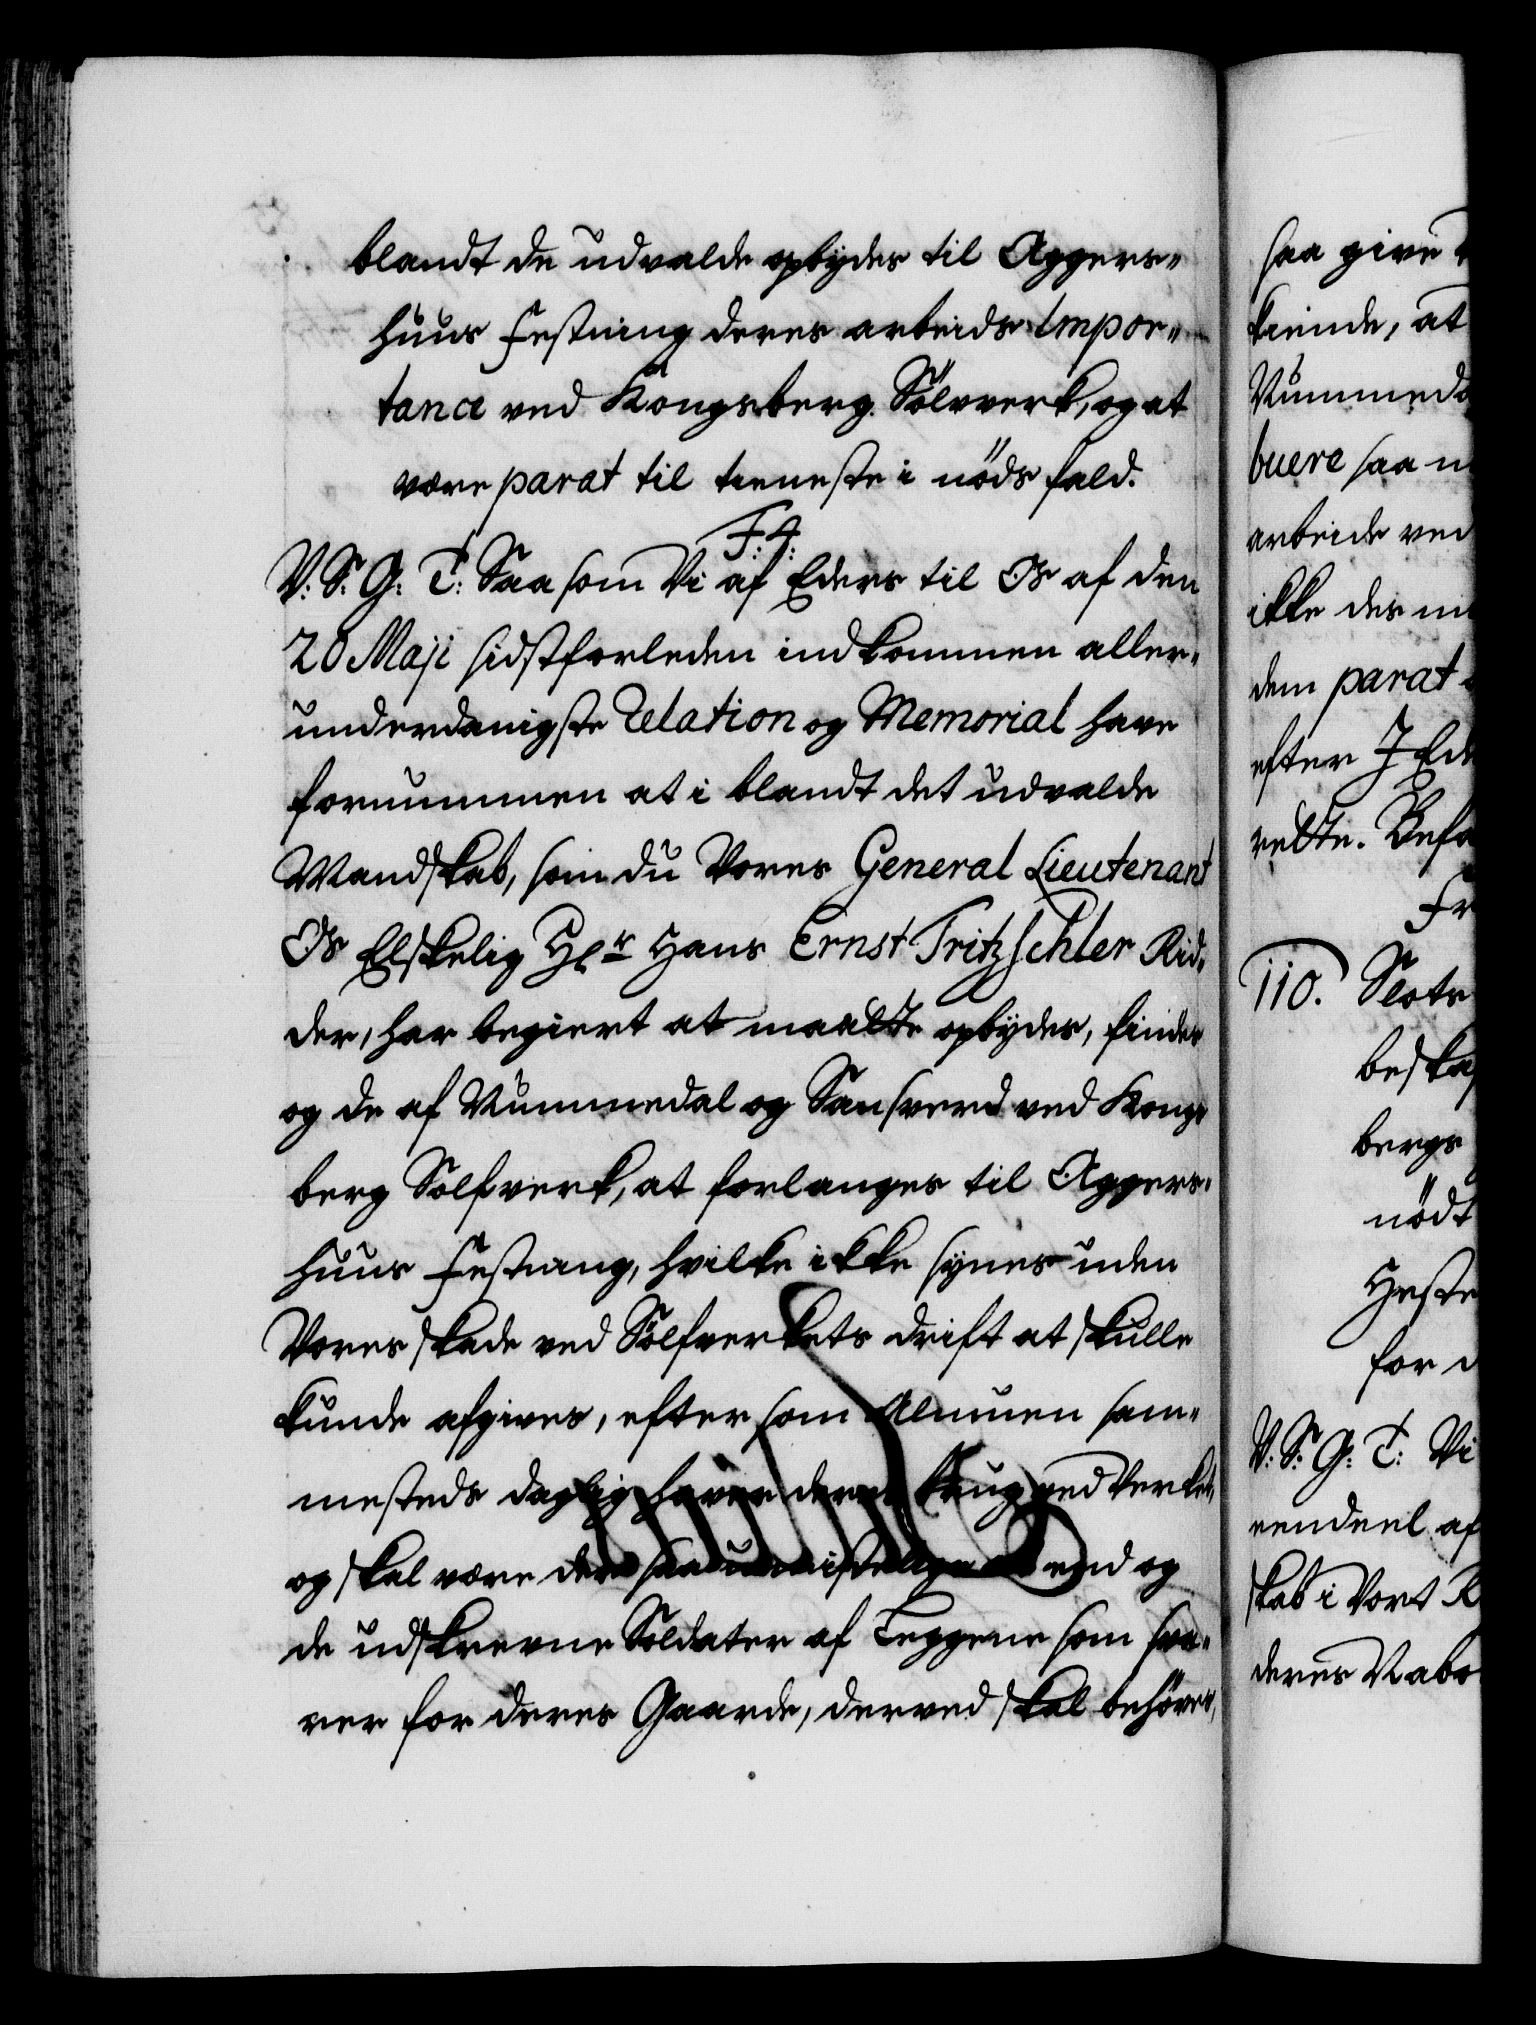 blandt de udvalde opbydes til Aggers-
huus Festning deres arbeids Impor-
tance ved Kongsberg Sölvverk, og at
være parat til tieneste i nöds fald.
F: 4:
V: S: G: T: Saa som Vi af Eders til Os af den
20 Maji sidstforleden indkommen aller-
underdanigste Relation og Memorial have
fornummen at i blandt det udvalde
Mandskab, som du Vores General Lieutenant
Os Elskelig Hr Hans Ernst Fritzschler Rid-
der, har begiert at maatte opbydes, findes
og de af Nummedal og Sansverd ved Kongs
berg Solfverk, at forlanges til Aggers-
huus Festning, hvilke ikke synes uden
Vores skade ved Sölfverkets drift at skulle
kunde afgives, eftersom Almuen sam-
mesteds daglig haver deres brug ved Verket,
og skal være der saa umistelige end og
de udskrevne Soldater af Leggene som sva-
rer for deres Gaarde, derved skal behöves,
saa give
kiende, at
Nummeda
buere saa
arbeide ved
ikke des
dem parat
efter I Ede
rette. Befa
Fr
110. Slots
beska
bergs
nödt
Heste
for
V: S: G: T: Vi
eendeel af
skab i Vort R
deres Nabo